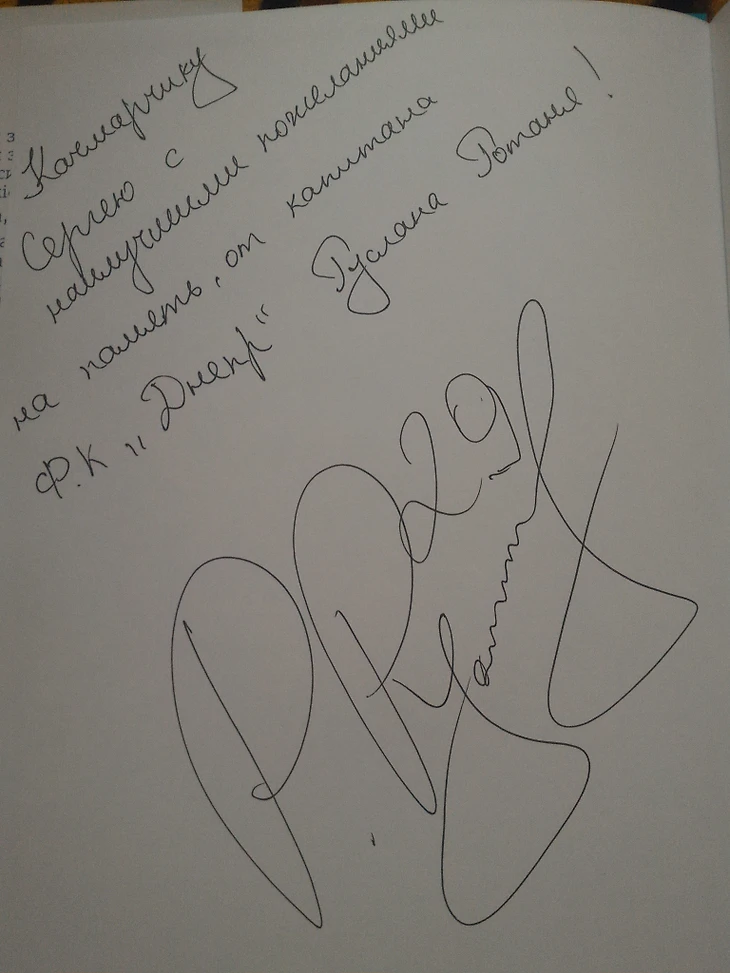 Качмарчику
Сергею с
наилучшими пожеланиями
на память, от капитана
Ф.К „Днепр“ Руслана Ротаня!
29